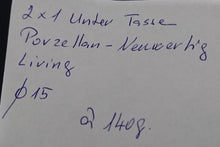 2 x 1 Unter Tasse
Porzellan - Neuwertig
Living
ø 15
à 140g.